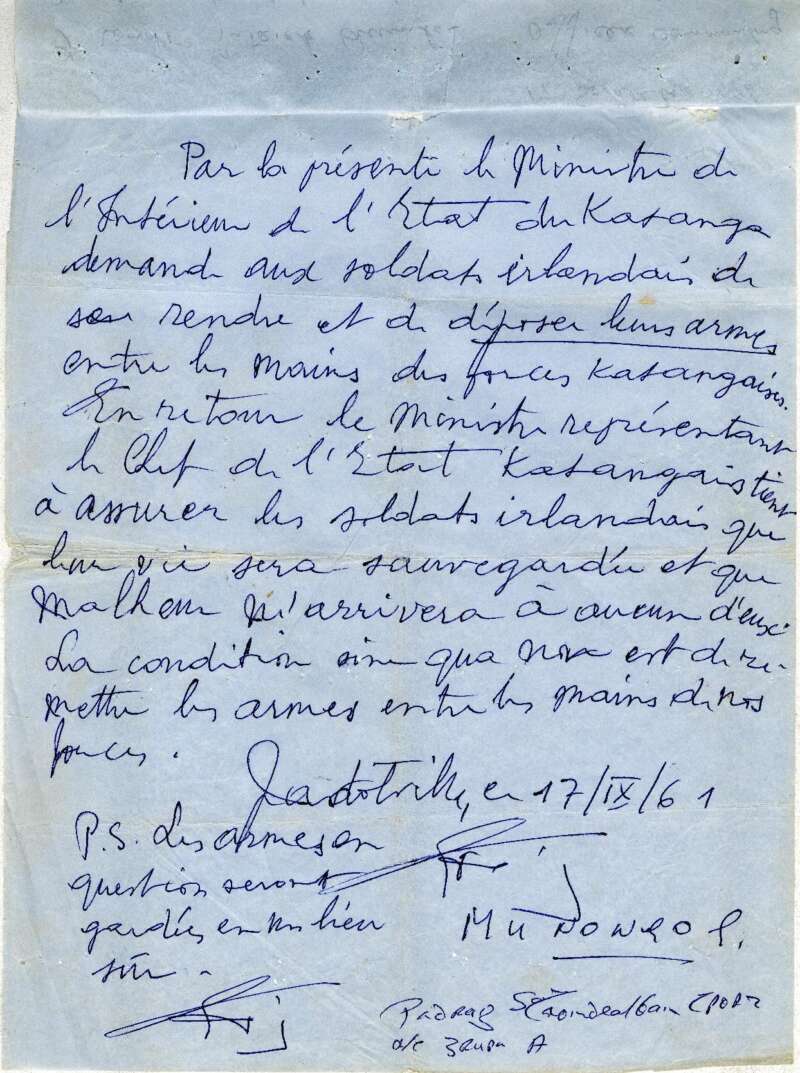 Par la présente le Ministre de
l'Intérieur de l'Etat du Katanga
demande aux soldats irlandais de
se rendre et de déposer leurs armes
entre les mains des forces Katangaises.
En retour le Ministre représentant
le Chef de l'Etat Katangais tient
à assurer les soldats irlandais que
leur vie sera sauvegardée et que
malheur n'arrivera à aucun d'eux.
La condition sine qua non est de re-
mettre les armes entre les mains de nos
forces.
Jadotville, le 17/IX/61
P.S. Les armes en
question seront
gardées en un lieu
sûr.
MUNONGO G.
Pádraig
o/c A